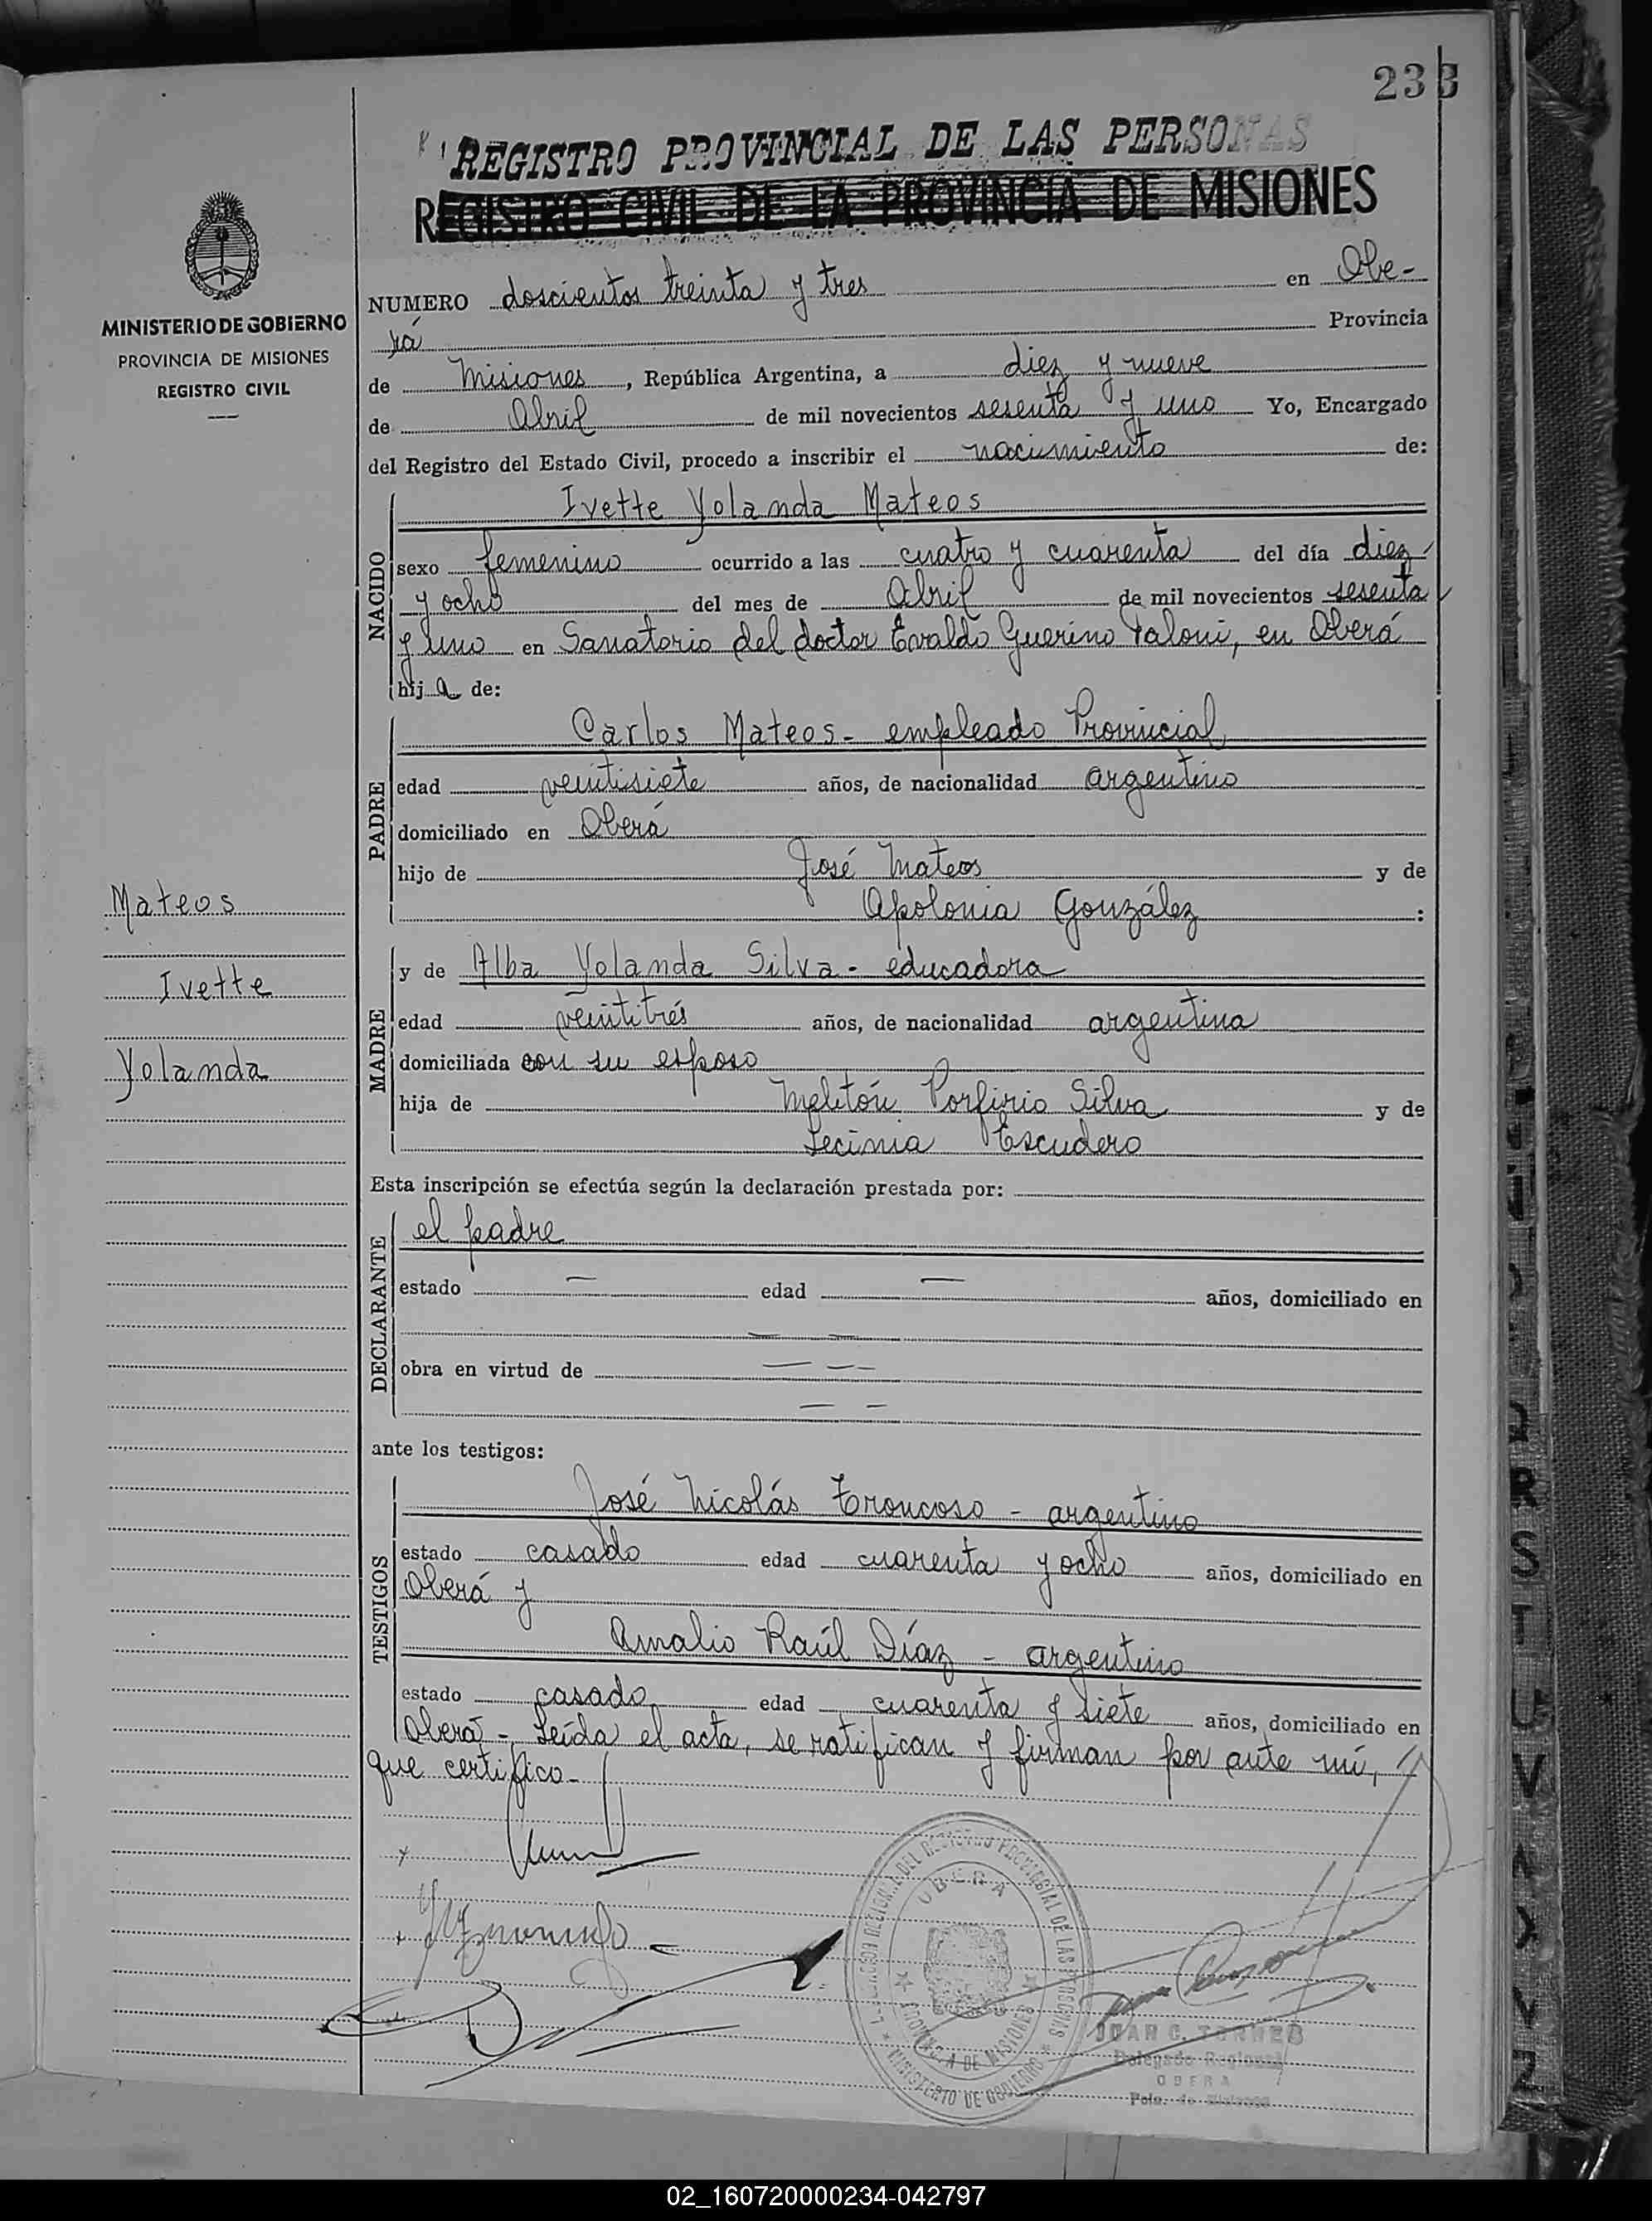 233
REGISTRO PROVINCIAL DE LAS PERSONAS
REGISTRO CIVIL DE LA PROVINCIA DE MISIONES
MINISTERIO DE GOBIERNO
PROVINCIA DE MISIONES
REGISTRO CIVIL
NUMERO doscientos treinta y tres en Obe-
rá Provincia
de Misiones, República Argentina, a diez y nueve
de Abril de mil novecientos sesenta y uno Yo, Encargado
del Registro del Estado Civil, procedo a inscribir el nacimiento de:
NACIDO
Ivette Yolanda Mateos
sexo femenino ocurrido a las cuatro y cuarenta del día diez
y ocho del mes de Abril de mil novecientos sesenta
y uno en Sanatorio del doctor Evaldo Guerino Paloni, en Oberá
hija de:
PADRE
Carlos Mateos - empleado Provincial
edad veintisiete años, de nacionalidad argentino
domiciliado en Oberá
hijo de José Mateos y de
Apolonia González :
Mateos
Ivette
Yolanda
MADRE
y de Alba Yolanda Silva - educadora
edad veintitrés años, de nacionalidad argentina
domiciliada con su esposo
hija de Melitón Porfirio Silva y de
Escudero
Esta inscripción se efectúa según la declaración prestada por:
DECLARANTE
el padre
estado — edad — años, domiciliado en
— —
obra en virtud de — — –
— –
ante los testigos:
TESTIGOS
José Nicolás Troncoso - argentino
estado casado edad cuarenta y ocho años, domiciliado en
Oberá y
Amalio Raúl Díaz - argentino
estado casado edad cuarenta y siete años, domiciliado en
Oberá - Leída el acta, se ratifican y firman por ante mí,
que certifico -
OBERA
PROVINCIA DE MISIONES
MINISTERIO DE GOBIERNO
JUAN C. TORRES
Delegado Regional
OBERA
Pcia. de Misiones
R
S
T
U
V
Z
02_160720000234-042797